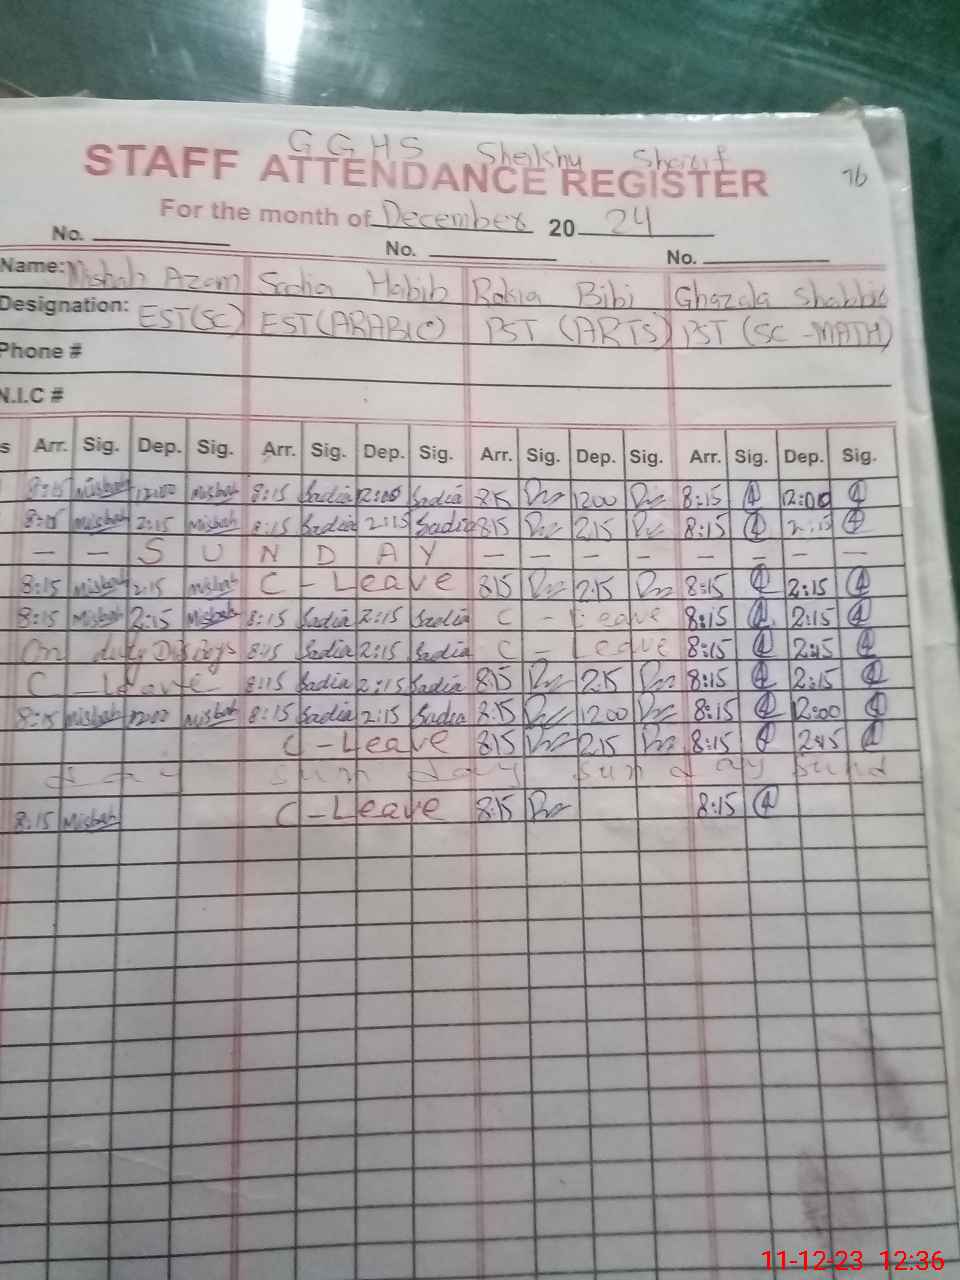 GGHS Sheikhy Sharif
STAFF ATTENDANCE REGISTER 76
For the month of December 20 24
No. No. No.
Name: Misbah Azam Sadia Habib Rokia Bibi Ghazala Shabbir
Designation: EST(SC) EST(ARABIC) PST (ARTS) PST (SC-MATH)
Phone #
N.I.C #
s Arr. Sig. Dep. Sig. Arr. Sig. Dep. Sig. Arr. Sig. Dep. Sig. Arr. Sig. Dep. Sig.
8:15 Misbah 12:00 Misbah 8:15 Sadia 12:00 Sadia 8:15 1200 8:15 12:00
8:15 Misbah 2:15 Misbah 8:15 Sadia 2:15 Sadia 815 2.15 8:15 2:15
— — S U N D A Y — — — — — — — —
8:15 Misbah 2:15 Misbah C - Leave 815 2.15 8:15 2:15
8:15 Misbah 2:15 Misbah 8:15 Sadia 2:15 Sadia C - Leave 8:15 2:15
On duty 8:15 Sadia 2:15 Sadia C - Leave 8:15 2:15
C - Leave 8:15 Sadia 2:15 Sadia 8:15 2.15 8:15 2:15
8:15 Misbah 12:00 Misbah 8:15 Sadia 2:15 Sadia 8:15 1200 8:15 12:00
C - Leave 815 2.15 8:15 2:15
day sun day sun day sund
8:15 Misbah C - Leave 8:15 8:15
11-12-23 12:36